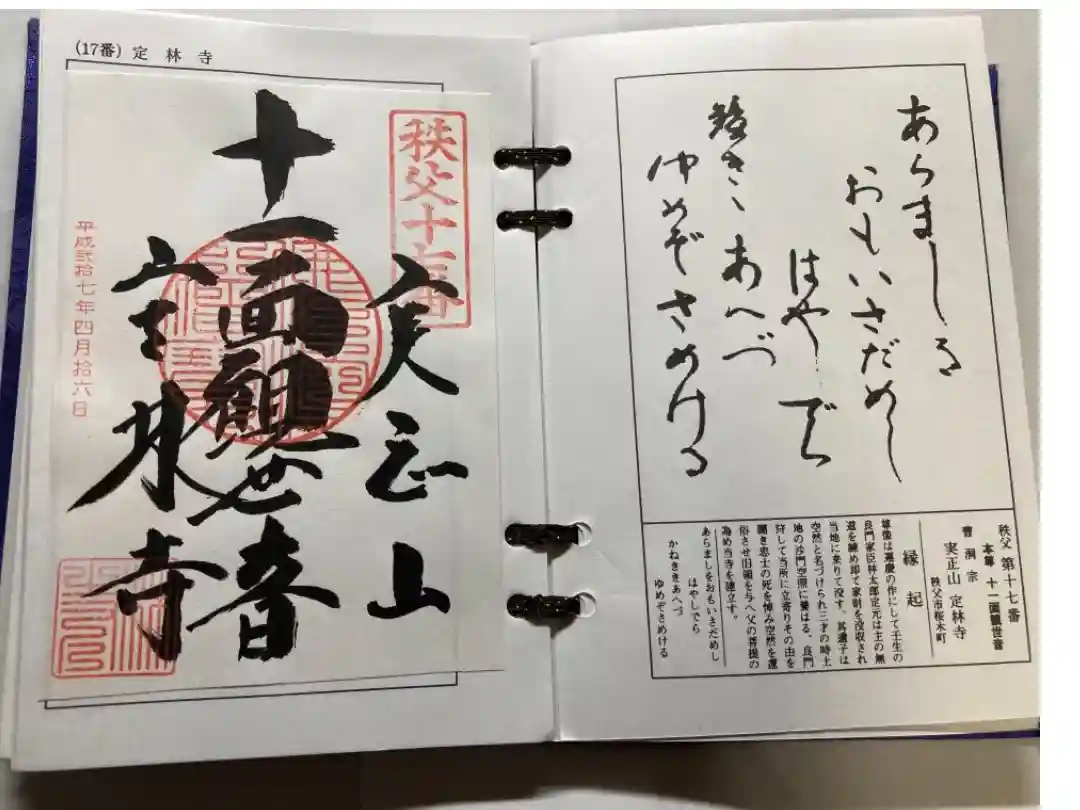 (17番) 定林寺
秩父十七番
実正山
十一面観世音
定林寺
平成弐拾七年四月拾六日
あらましを
おもいさだめし
はやしでら
鐘きゝあへづ
ゆめぞさめける
秩父 第十七番
本尊 十一面観世音
曹洞宗
実正山 定林寺
秩父市桜木町
縁起
尊像は運慶の作にして壬生の
良門家臣林太郎定元は主の無
道を諫め却て家財を没収され
当地に来りて没す。其遺子は
空然と名づけられ三才の時土
地の沙門空照に養はる。良門
狩して当所に立寄りその由を
聞き忠士の死を悼み空然を還
俗させ旧領を与へ父の菩提の
為め当寺を建立す。
あらましをおもいさだめし
はやしでら
かねききあへづ
ゆめぞさめける